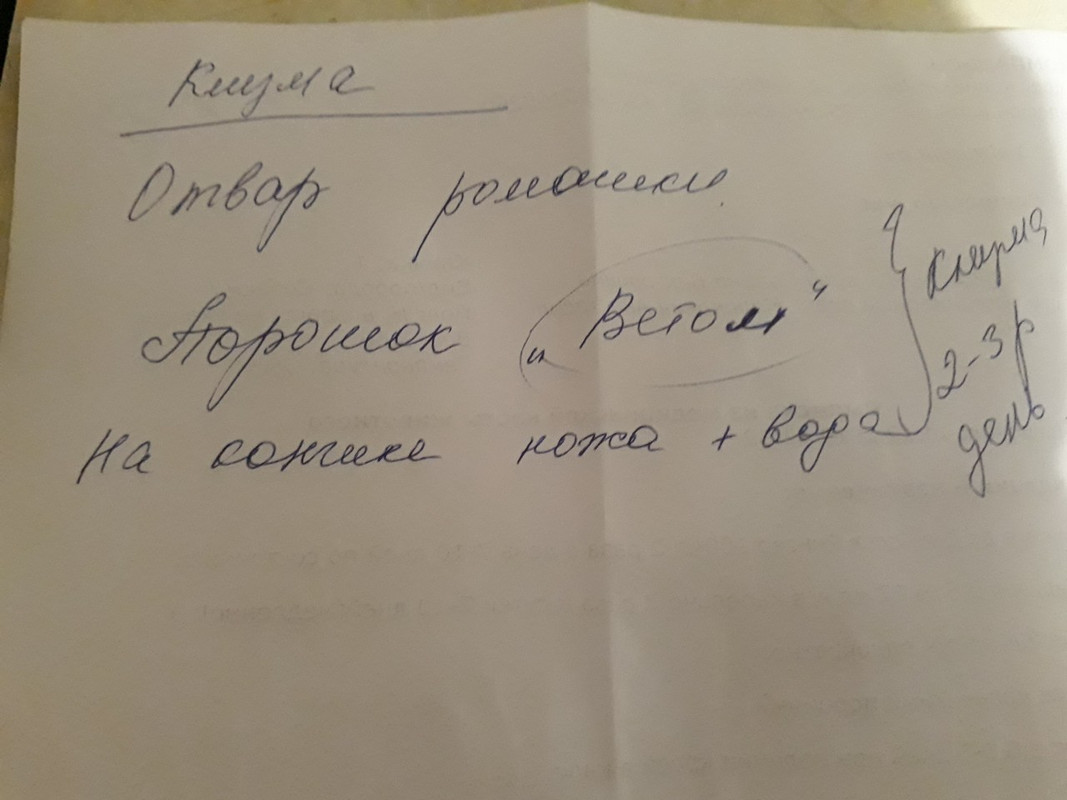 Клизма
Отвар ромашки
Порошок „Ветом“
На кончике ножа + вода
Клизма
2-3 р
день